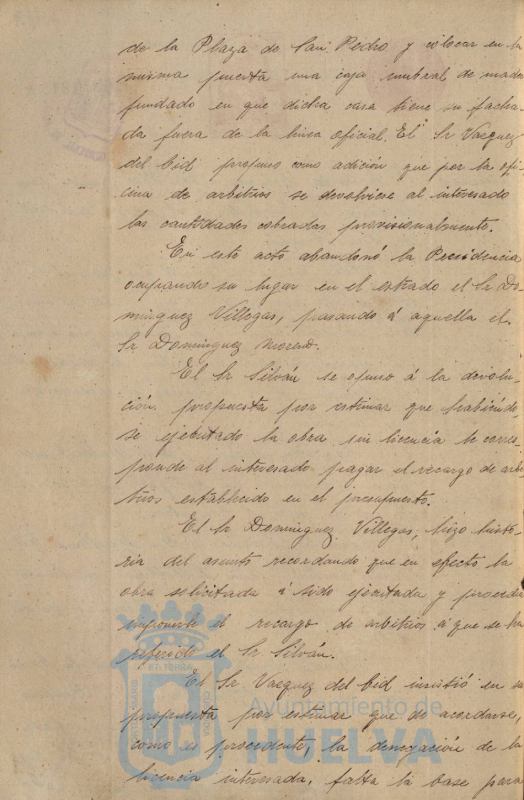 de la Plaza de San Pedro y colocar en la
misma puerta una caja umbral de made
fundado en que dicha casa tiene su facha-
da fuera de la linea oficial. El Sr Vazquez
del Cid propuso como adición que por la ofi-
cina de arbitrios se devolviese al interesado
las cantidades cobradas provisionalmente.
En este acto abandonó la Presidencia
ocupando su lugar en el estrado el Sr Do-
minguez Villegas, pasando á aquella el
Sr Dominguez Moreno.
El Sr Silván se opuso á la devolu-
ción propuesta por estimar que habiéndo-
se ejecutado la obra sin licencia le corres
ponde al interesado pagar el recargo de arbi
trios establecido en el presupuesto.
El Sr Dominguez Villegas, hizo histo-
ria del asunto recordando que en efecto la
obra solicitada á sido ejecutada y procede
imponerle el recargo de arbitrios á que se ha
referido el Sr Silván.
El Sr Vazquez del Cid insistió en su
propuesta por estimar que de acordarse,
como es procedente, la denegación de la
licencia interesada, falta la base para
Ayuntamiento de
HUELVA